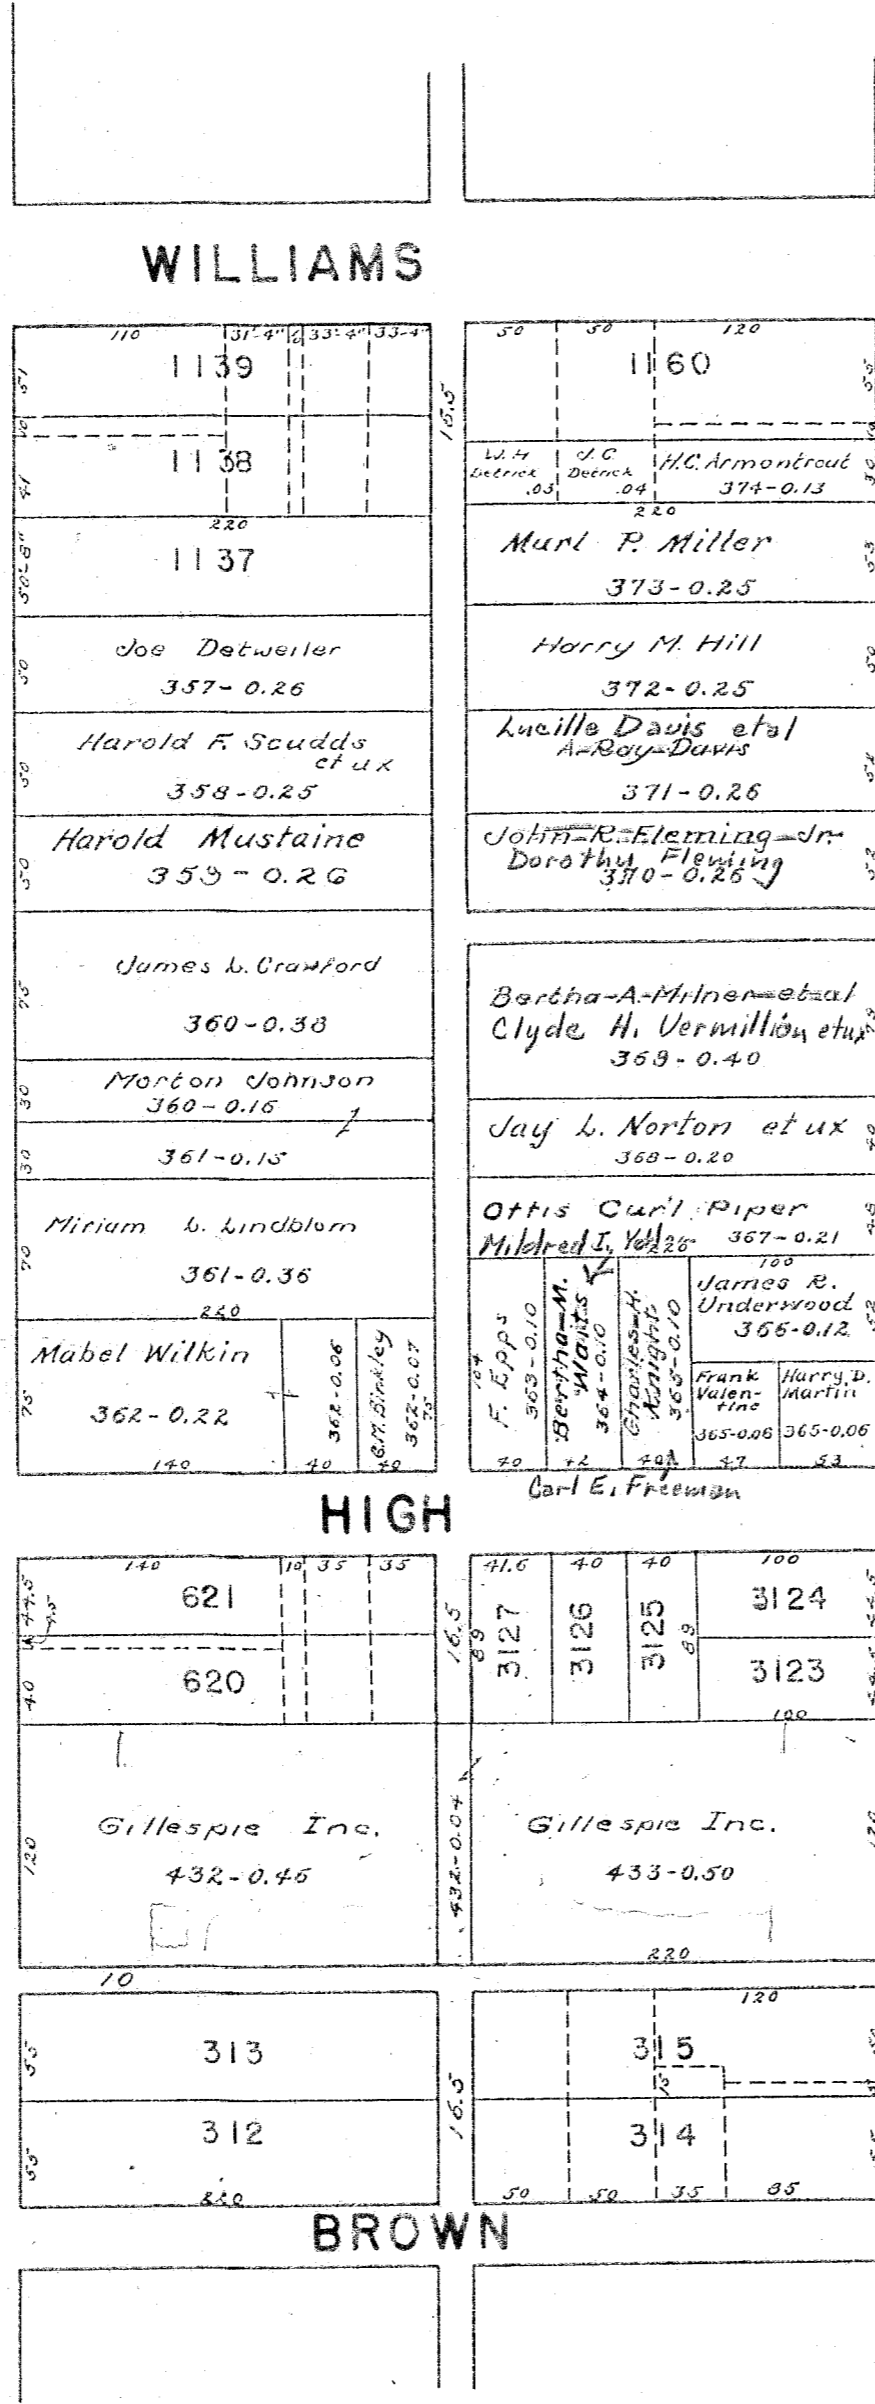 WILLIAMS
110 31'-4" 6 33'-4" 33-4"
51
1139
10
41
1138
220
50'-8"
1137
15.5
50
Joe Detweiler
357-0.26
50
Harold F. Scudds
et ux
358-0.25
50
Harold Mustaine
359-0.26
75
James L. Crawford
360-0.38
30
Morton Johnson
360-0.16
30
361-0.15
70
Miriam L. Lindblom
361-0.36
220
75
Mabel Wilkin
362-0.22
140
362-0.06
40
G.M. Binkley
362-0.07
75
40
50 50 120
55
1160
10
W.H
Detrick
.03
J.C
Detrick
.04
H.C. Armontrout
374-0.13
30
220
Murl P. Miller
373-0.25
53
Harry M. Hill
372-0.25
50
Lucille Davis etal
A. Roy Davis
371-0.26
52
John R. Fleming Jr.
Dorothy Fleming
370-0.26
52
Bertha A. Milner et al
Clyde H. Vermillion etux
369-0.40
Jay L. Norton et ux
368-0.20
40
Ottis Curl Piper
Mildred I.
367-0.21
104
F. Epps
363-0.10
40
Bertha M.
Waits
364-0.10
42
Charles H.
Knight
365-0.10
40
100
James R.
Underwood
366-0.12
52
Frank
Valen-
tine
365-0.06
47
Harry D.
Martin
365-0.06
53
Carl E. Freeman
HIGH
140 10 35 35
44.5
4.5
621
40
620
16.5
41.6 40 40 100
89
3127
3126
3125
89
3124
44.5
3123
44.5
100
120
Gillespie Inc.
432-0.46
432-0.04
Gillespie Inc.
433-0.50
120
220
10
55
313
55
312
220
16.5
120
315
15
314
55
50 50 35 85
BROWN